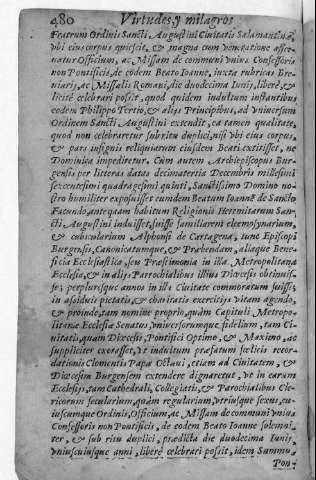 480 Virtudes, y milagros
Fratrum Ordinis Sancti Augustini Civitatis Salamantinæ,
vbi eius corpus quiescit, & magna cum veneratione asser-
natur Officium, ac Missam de communi vnius Confessoris
non Pontificis, de eodem Beato Ioanne, iuxta rubricas Bre-
uiarij, ac Missalis Romani, die duodecima Iunij, liberè, &
licitè celebrari possit, quod quidem indultum instantibus
eodem Philippo Tertio, & alijs Principibus, ad vniuersum
Ordinem Sancti Augustini extendit, ea tamen qualitate,
quod non celebraretur sub ritu duplici, nisi vbi eius corpus,
& pars insignis reliquiarum eiusdem Beati extitisset, ne
Dominica impediretur. Cum autem Archiepiscopus Bur-
gensis per litteras datas decimatertia Decembris millesimi
sexcentesimi quadragesimi quinti, Sanctissimo Domino no-
stro humiliter exposuisset eumdem Beatum Ioannē de Sancto
Facundo, antequam habitum Religionis Heremitarum San-
cti Augustini induisset, fuisse familiarem eleemosynarium,
& cubicularium Alphonsi de Cartagena, tunc Episcopi
Burgensis, Canonicatumque, & Præbendam, aliaque Bene-
ficia Ecclesiastica seu Præstimonia in illa Metropolitana
Ecclesia, & in alijs Parrochialibus illius Diœcesis obtinuis-
se, perpluresque annos in illa Ciuitate commoratum fuisse,
in assiduis pietatis, & charitatis exercitijs vitam agendo,
& proinde, tam nomine proprio, quàm Capituli Metropo-
litanæ Ecclesiæ Senatus, vniuersorumque fidelium, tam Ci-
uitatis, quàm Diœcesis, Pontifici Optimo, & Maximo, ac
suppliciter exorasset, vt indultum præfatum fœlicis recor-
dationis Clementis Papæ Octaui, etiam ad Ciuitatem, &
Diœcesim Burgensem extendere dignaretur, vt in earum
Ecclesijs, tam Cathedrali, Collegiatis, & Parochialibus Cle-
ricorum secularium, quàm regularium, vtriusque sexus, cu-
iuscumque Ordinis, Officium, ac Missam de communi vnius
Confessoris non Pontificis, de eodem Beato Ioanne solemni-
ter, & sub ritu duplici, prædicta die duodecima Iunij,
vniuscuiusque anni, liberè celebrari possit, idem Sanmus
Pon-